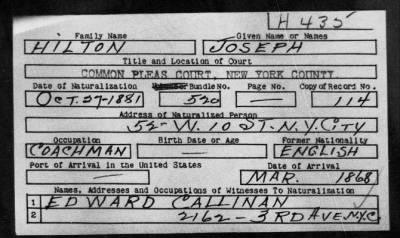 H 435
Family Name Given Name or Names
HILTON JOSEPH
Title and Location of Court
COMMON PLEAS COURT, NEW YORK COUNTY
Date of Naturalization Bundle No. Page No. Copy of Record No.
OCT. 27-1881 520 — 114
Address of Naturalized Person
52-W. 10 ST. N.Y. CITY
Occupation Birth Date or Age Former Nationality
COACHMAN — ENGLISH
Port of Arrival in the United States Date of Arrival
— MAR. 1868
Names, Addresses and Occupations of Witnesses To Naturalization
1 EDWARD CALLINAN
2 2162-3RD AVE. N.Y.C.